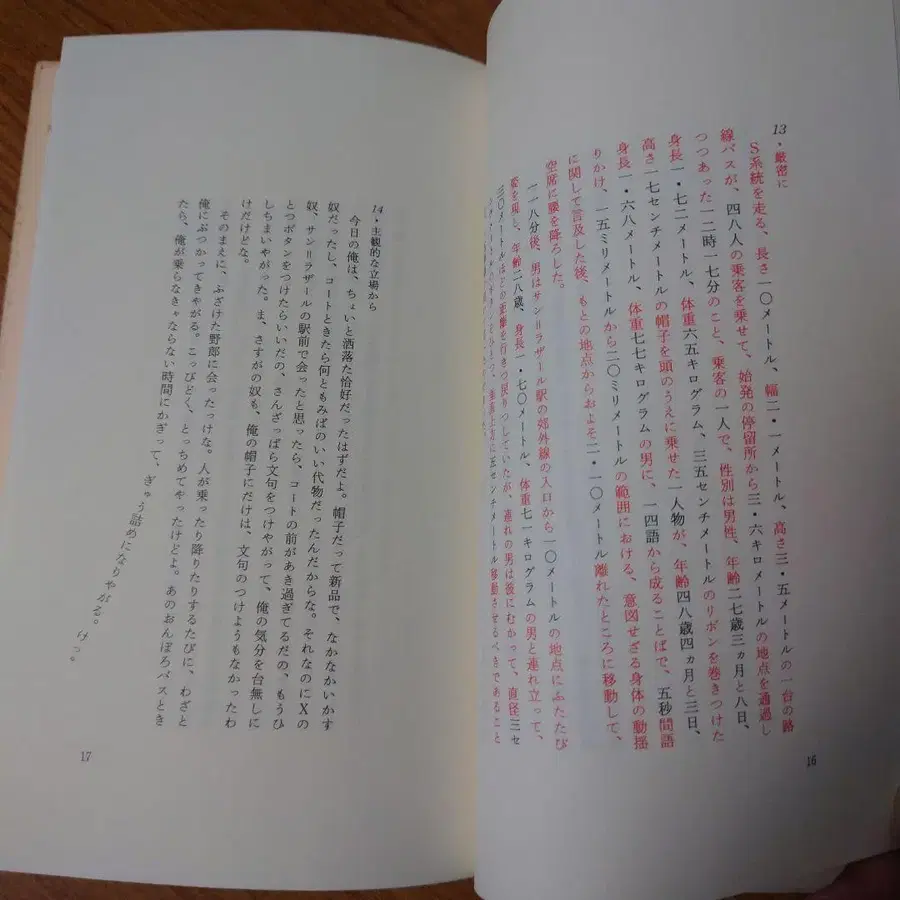 13・厳密に
S系統を走る、長さ一〇メートル、幅二・一メートル、高さ三・五メートルの一台の路
線バスが、四八人の乗客を乗せて、始発の停留所から三・六キロメートルの地点を通過し
つつあった一二時一七分のこと、乗客の一人で、性別は男性、年齢二七歳三ヵ月と八日、
身長一・七二メートル、体重六五キログラム、三五センチメートルのリボンを巻きつけた
高さ一七センチメートルの帽子を頭のうえに乗せた一人物が、年齢四八歳四ヵ月と三日、
身長一・六八メートル、体重七七キログラムの男に、一四語から成ることばで、五秒間語
りかけ、一五ミリメートルから二〇ミリメートルの範囲における、意図せざる身体の動揺
に関して言及した後、もとの地点からおよそ二・一〇メートル離れたところに移動して、
空席に腰を降ろした。
一一八分後、男はサン＝ラザール駅の郊外線の入口から一〇メートルの地点にふたたび
姿を現し、年齢二八歳、身長一・七〇メートル、体重七一キログラムの男と連れ立って、
三〇メートルほどの距離を行きつ戻りつしていたが、連れの男は彼にむかって、直径三セ
ンチメートルの
上方に五センチメートル移動させるべきであること
16
14・主観的な立場から
今日の俺は、ちょいと洒落た恰好だったはずだよ。帽子だって新品で、なかなかいかす
奴だったし、コートときたら何ともみばのいい代物だったんだからな。それなのにXの
奴、サン＝ラザールの駅前で会ったと思ったら、コートの前があき過ぎてるだの、もうひ
とつボタンをつけたらいいだの、さんざっぱら文句をつけやがって、俺の気分を台無しに
しちまいやがった。ま、さすがの奴も、俺の帽子にだけは、文句のつけようもなかったわ
けだけどな。
そのまえに、ふざけた野郎に会ったっけな。人が乗ったり降りたりするたびに、わざと
俺にぶつかってきやがる。こっぴどく、とっちめてやったけどよ。あのおんぼろバスとき
たら、俺が乗らなきゃならない時間にかぎって、ぎゅう詰めになりやがる。けっ。
17